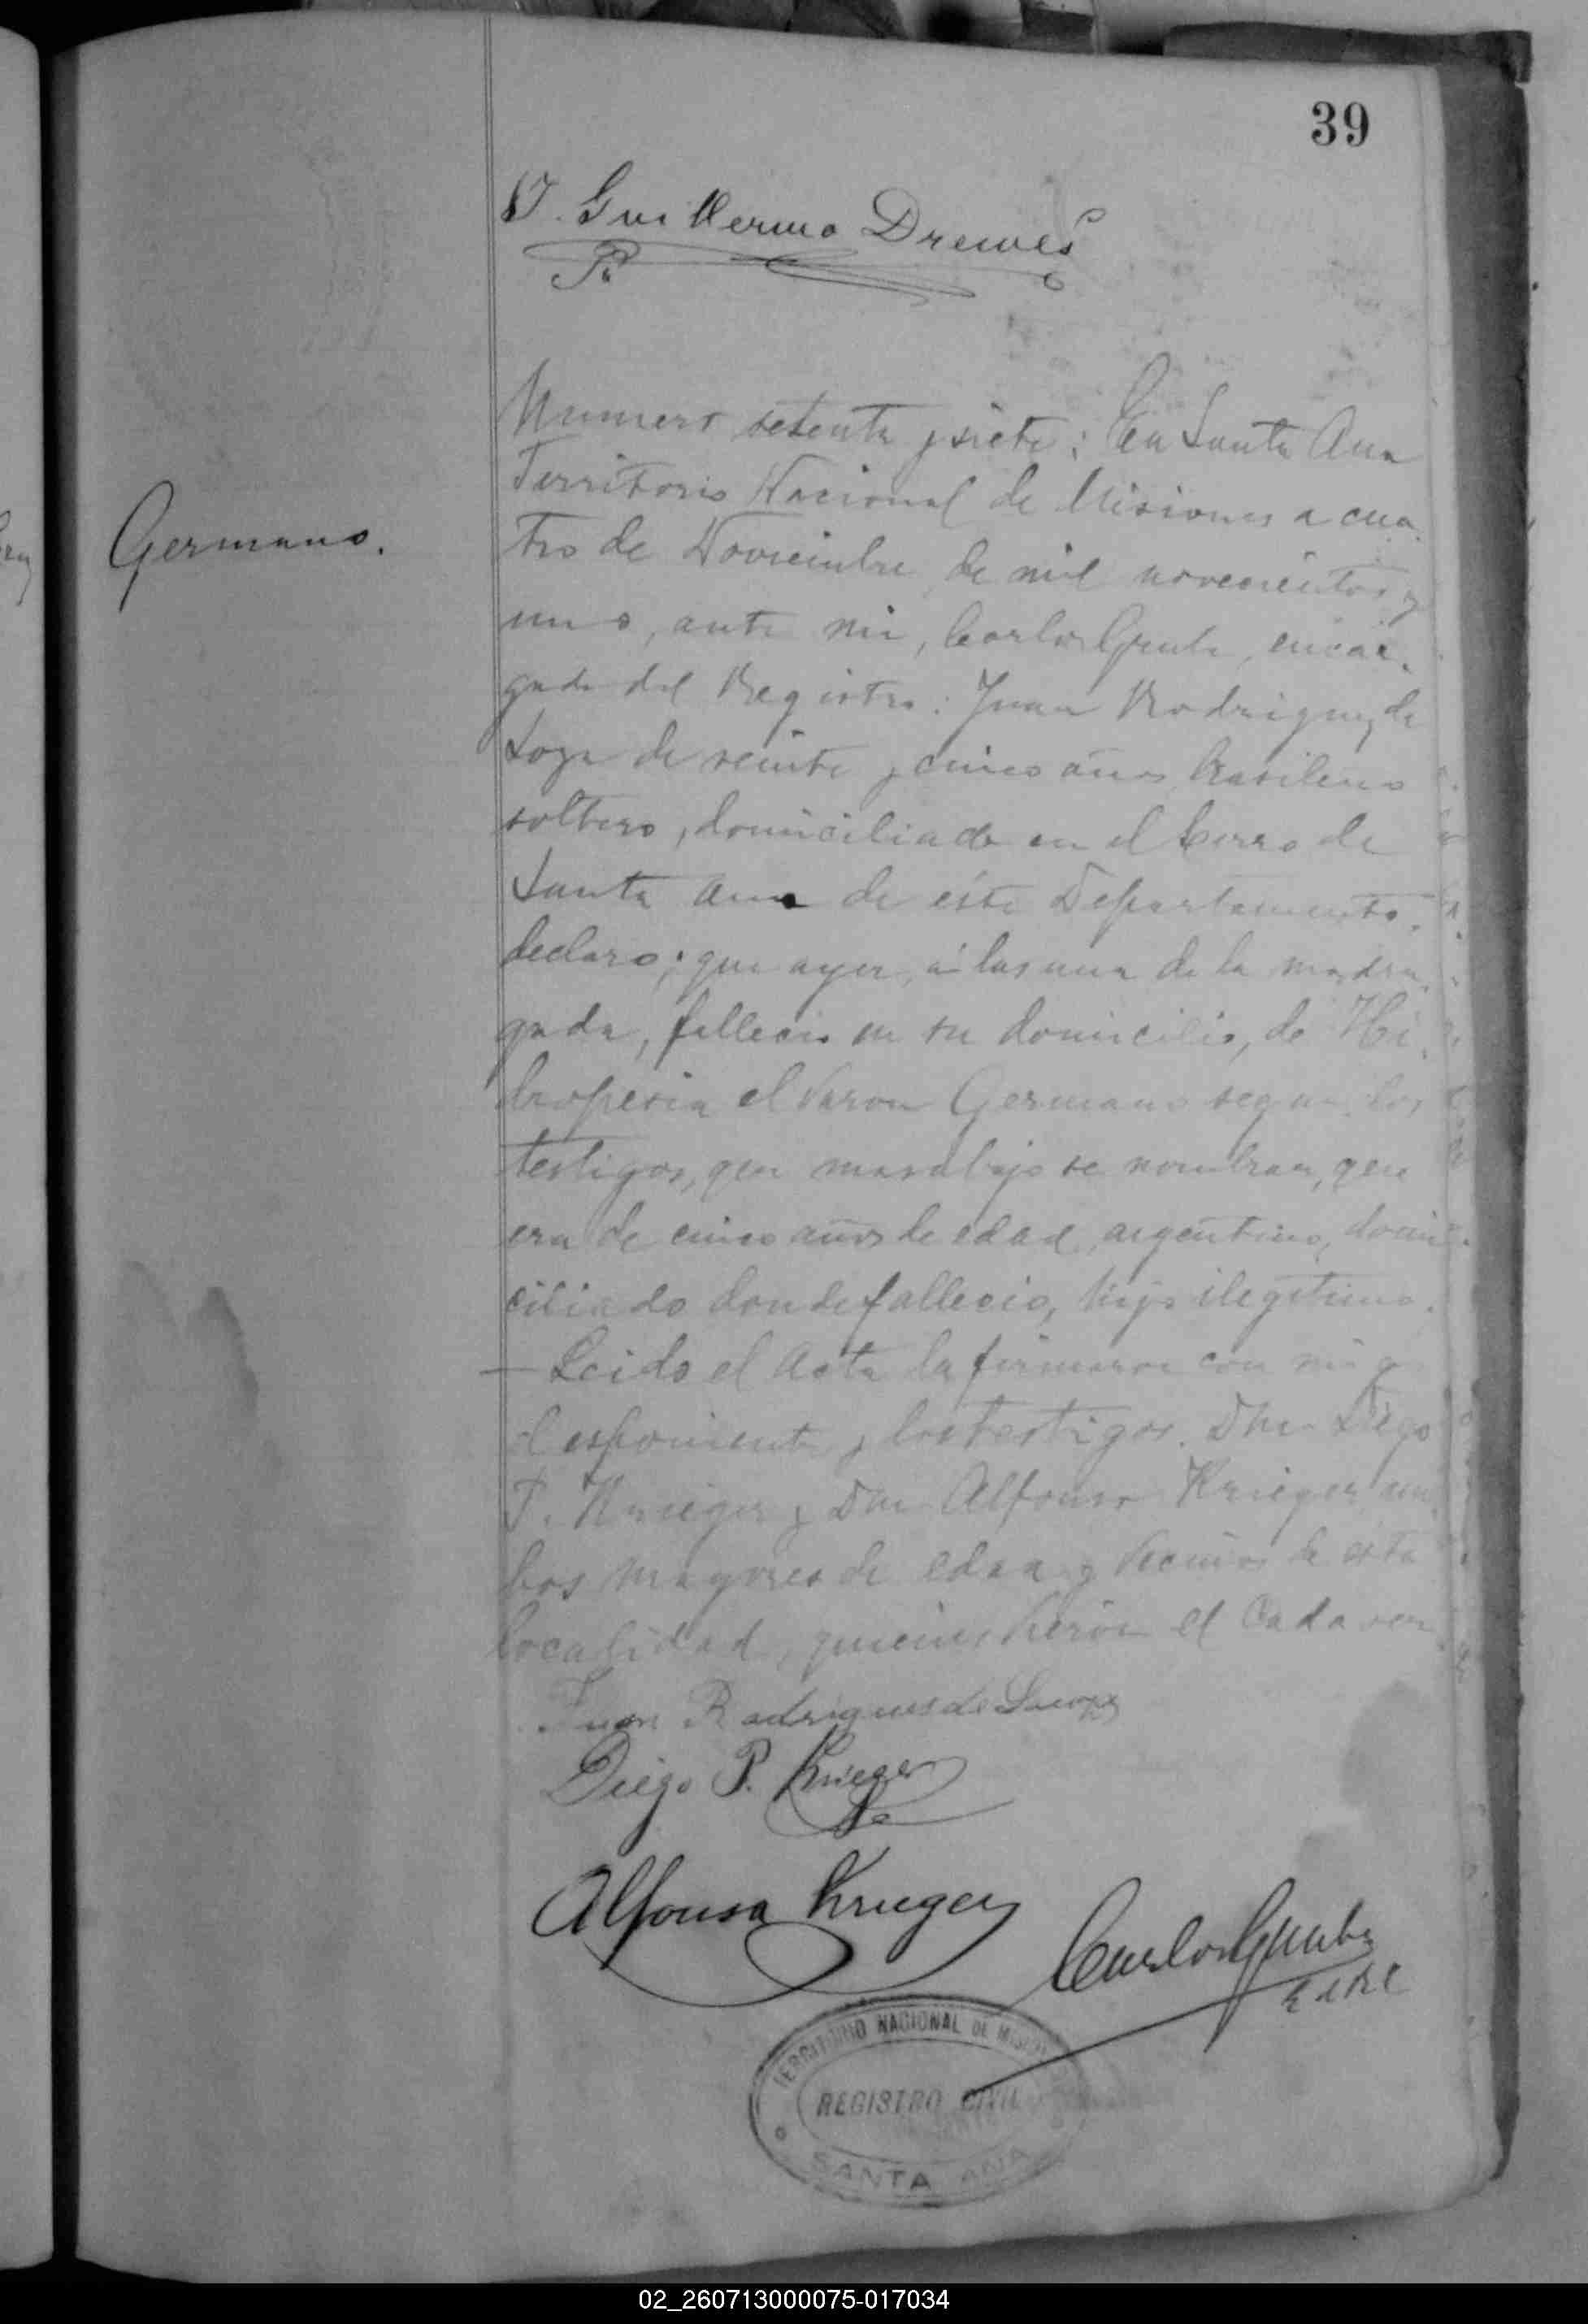 39
Guillermo Drewes
Numero setenta y siete; En Santa Ana
Territorio Nacional de Misiones a cua
Germano.
tro de Noviembre de mil novecientos y
uno, ante mi, Carlos encar-
gado del Registro: Juan Rodriguez de
de veinte y cinco años brasileño
soltero, domiciliado en el Cerro de
Santa Ana de este Departamento.
declaro; que ayer, á las una de la madru
gada, fallecio en su domicilio, de Hi
dropesia el varon Germano segun los
testigos, que mas abajo se nombran, que
era de cinco años de edad, argentino, domi-
ciliado donde fallecio, hijo ilegitimo.
— Leido el Acta la firmaron con migo
el esponiente y los testigos. Don Diego
P. Krieger y Don Alfonso Krieger am
bos mayores de edad y vecinos de esta
localidad, quienes vieron el Cadaver.
Juan Rodrigues de
Diego P. Krieger
Alfonso Krieger
Carlos
TERRITORIO NACIONAL DE MISIONES
REGISTRO CIVIL
SANTA ANA
02_260713000075-017034